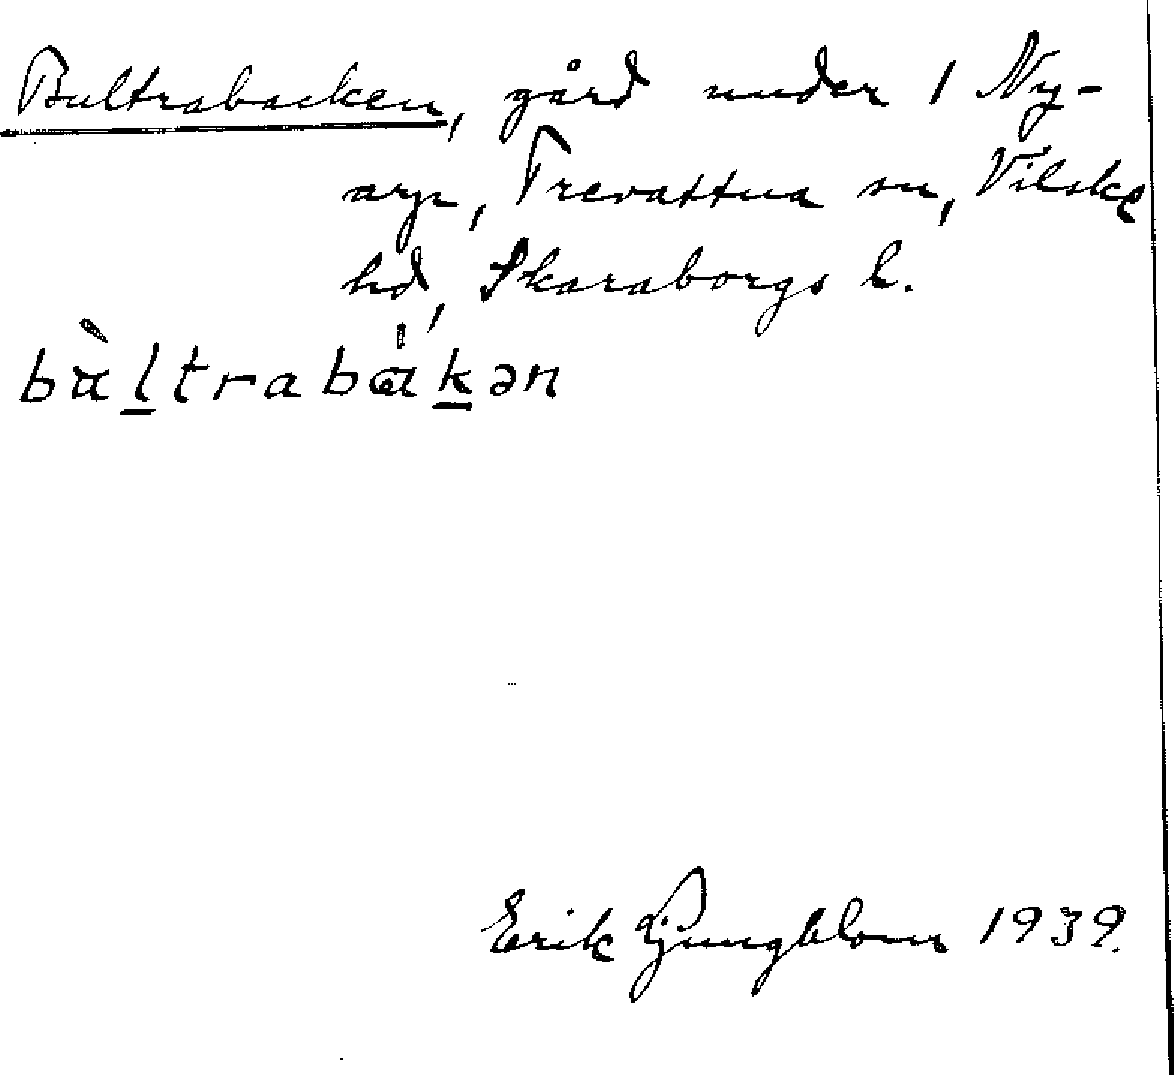 Bultrabacken, gård under 1 Ny-
arp, Trevattna sn, Vilske
hd, Skaraborgs l.
bùl̠trabák̠ən
Erik Ljungblom 1939.